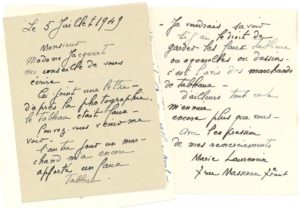 Le 5 Juillet 1949
Monsieur
Madame Jacquart
me conseille de vous
écrire —
Ci joint une lettre —
d'après la photographie
le tableau c'est faux —
Pouvez vous venir me
voir —
l'autre jour un mar-
chand m'a encore
apporté un faux
tableau —
Je voudrais savoir
si j'ai le droit de
garder les faux tableaux
ou aquarelles ou dessins —
c'est l'avis des marchands
de tableaux —
d'ailleurs tout cela
m'ennuie
encore plus que vous —
Avec l'expression
de mes remerciements
Marie Laurencin